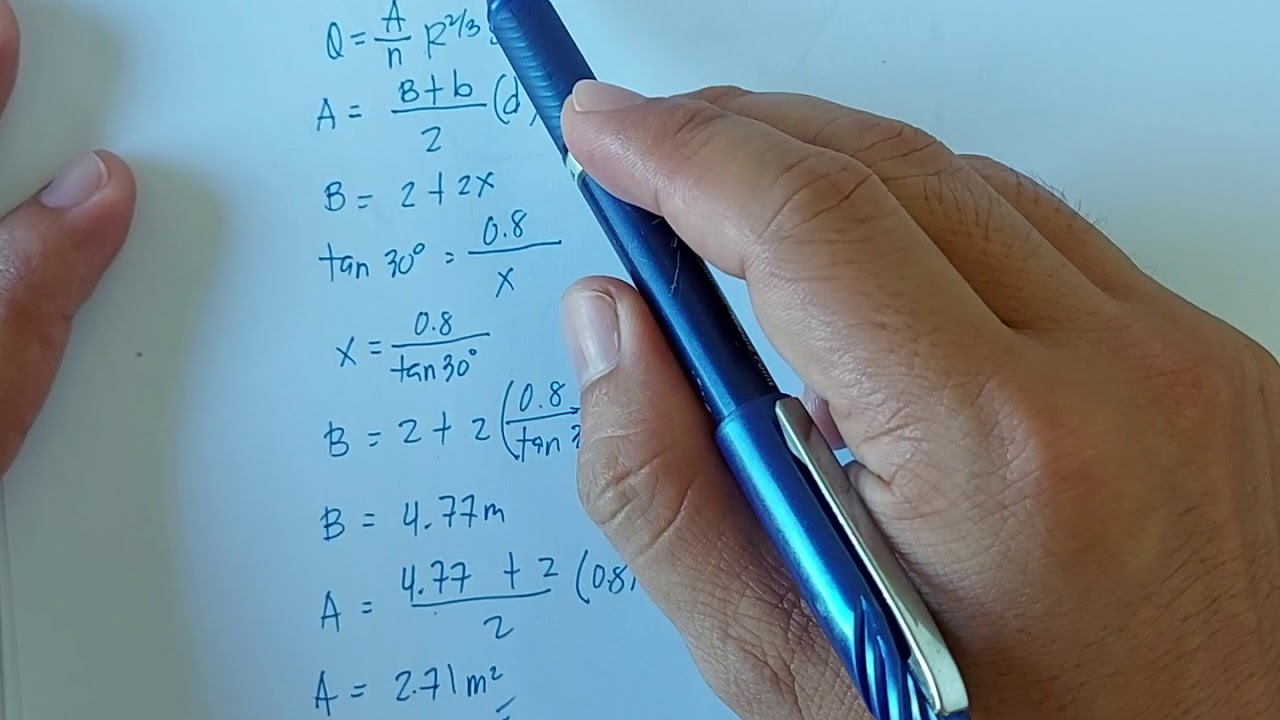 Q = A/n R^2/3
A = B+b/2 (d
B = 2 + 2x
tan 30° = 0.8/x
x = 0.8/tan30°
B = 2 + 2 (0.8/tan
B = 4.77m
A = 4.77 + 2/2 (0.8)
A = 2.71m²